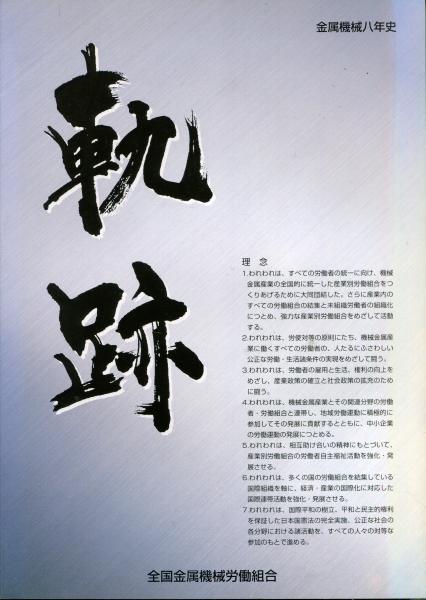 金属機械八年史
軌跡
理 念
1.われわれは、すべての労働者の統一に向け、機械
金属産業の全国的に統一した産業別労働組合をつ
くりあげるために大同団結した。さらに産業内の
すべての労働組合の結集と未組織労働者の組織化
につとめ、強力な産業別労働組合をめざして活動
する。
2.われわれは、労使対等の原則にたち、機械金属産
業に働くすべての労働者の、人たるにふさわしい
公正な労働・生活諸条件の実現をめざして闘う。
3.われわれは、労働者の雇用と生活、権利の向上を
めざし、産業政策の確立と社会政策の拡充のため
に闘う。
4.われわれは、機械金属産業とその関連分野の労働
者・労働組合と連帯し、地域労働運動に積極的に
参加してその発展に貢献するとともに、中小企業
の労働運動の発展につとめる。
5.われわれは、相互助け合いの精神にもとづいて、
産業別労働組合の労働者自主福祉活動を強化・発
展させる。
6.われわれは、多くの国の労働組合を結集している
国際組織を軸に、経済・産業の国際化に対応した
国際連帯活動を強化・発展させる。
7.われわれは、国際平和の樹立、平和と民主的権利
を保証した日本国憲法の完全実施、公正な社会の
各分野における諸活動を、すべての人々の対等な
参加のもとで進める。
全国金属機械労働組合